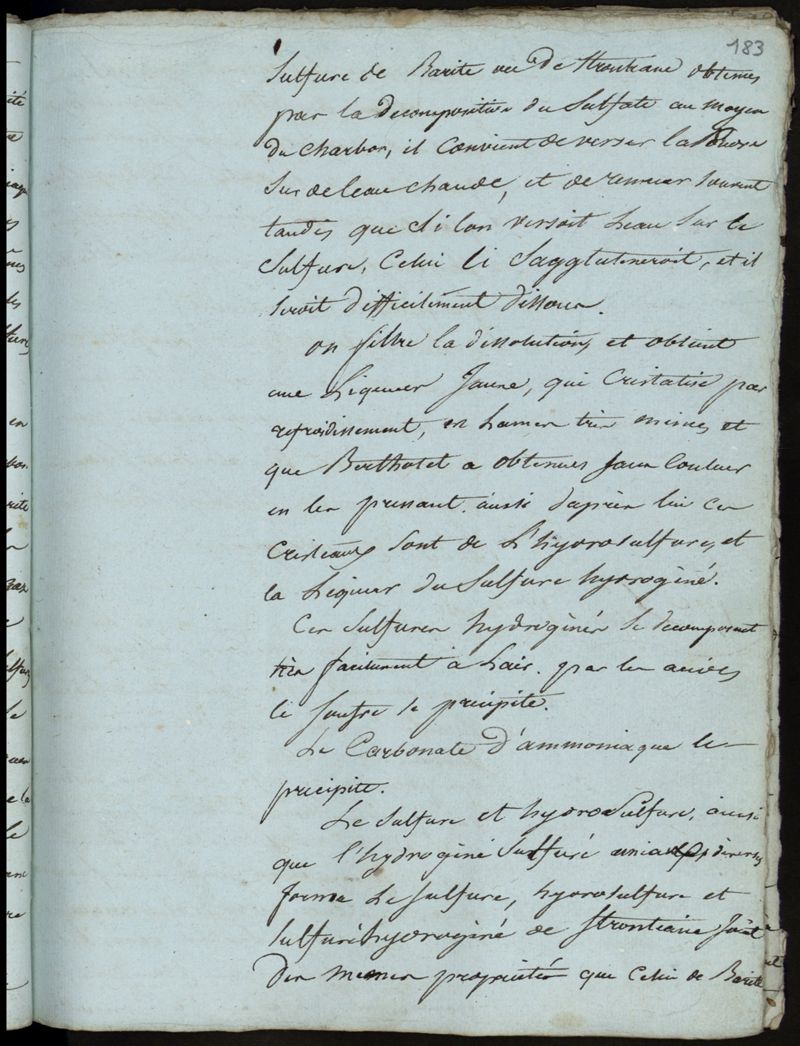 183
Sulfure de Barite ou de Strontiane obtenus
par la decomposition du Sulfate au moyen
du charbon, il Convient de verser la
Sur de leau chaude, et de remuer souvent
tandis que Si lon versoit Leau Sur le
Sulfure, Celui Ci Sagglutineroit, et il
Seroit difficilement dissous.
on filtre la dissolution, et obtient
une Liqueur Jaune, qui Cristalise par
refroidissement, en Lames très minces et
que Bertholet a obtenues sans Couleur
en les pressant. aussi daprès lui ces
Cristeaux sont de L'hydrosulfure, et
la Liqueur du Sulfure hydrogèné.
Ces Sulfures hydrogènés Se decomposent
très facilement à Lair. par les acides
le soufre se precipite.
Le Carbonate d'ammoniaque le
precipite.
Le Sulfure et hydroSulfure, aussi
que l'hydrogène Sulfuré
forme Le Sulfure, hydrosulfure et
Sulfure hydrogèné de Strontiane
Des Memes propriétés que Celui de Barite